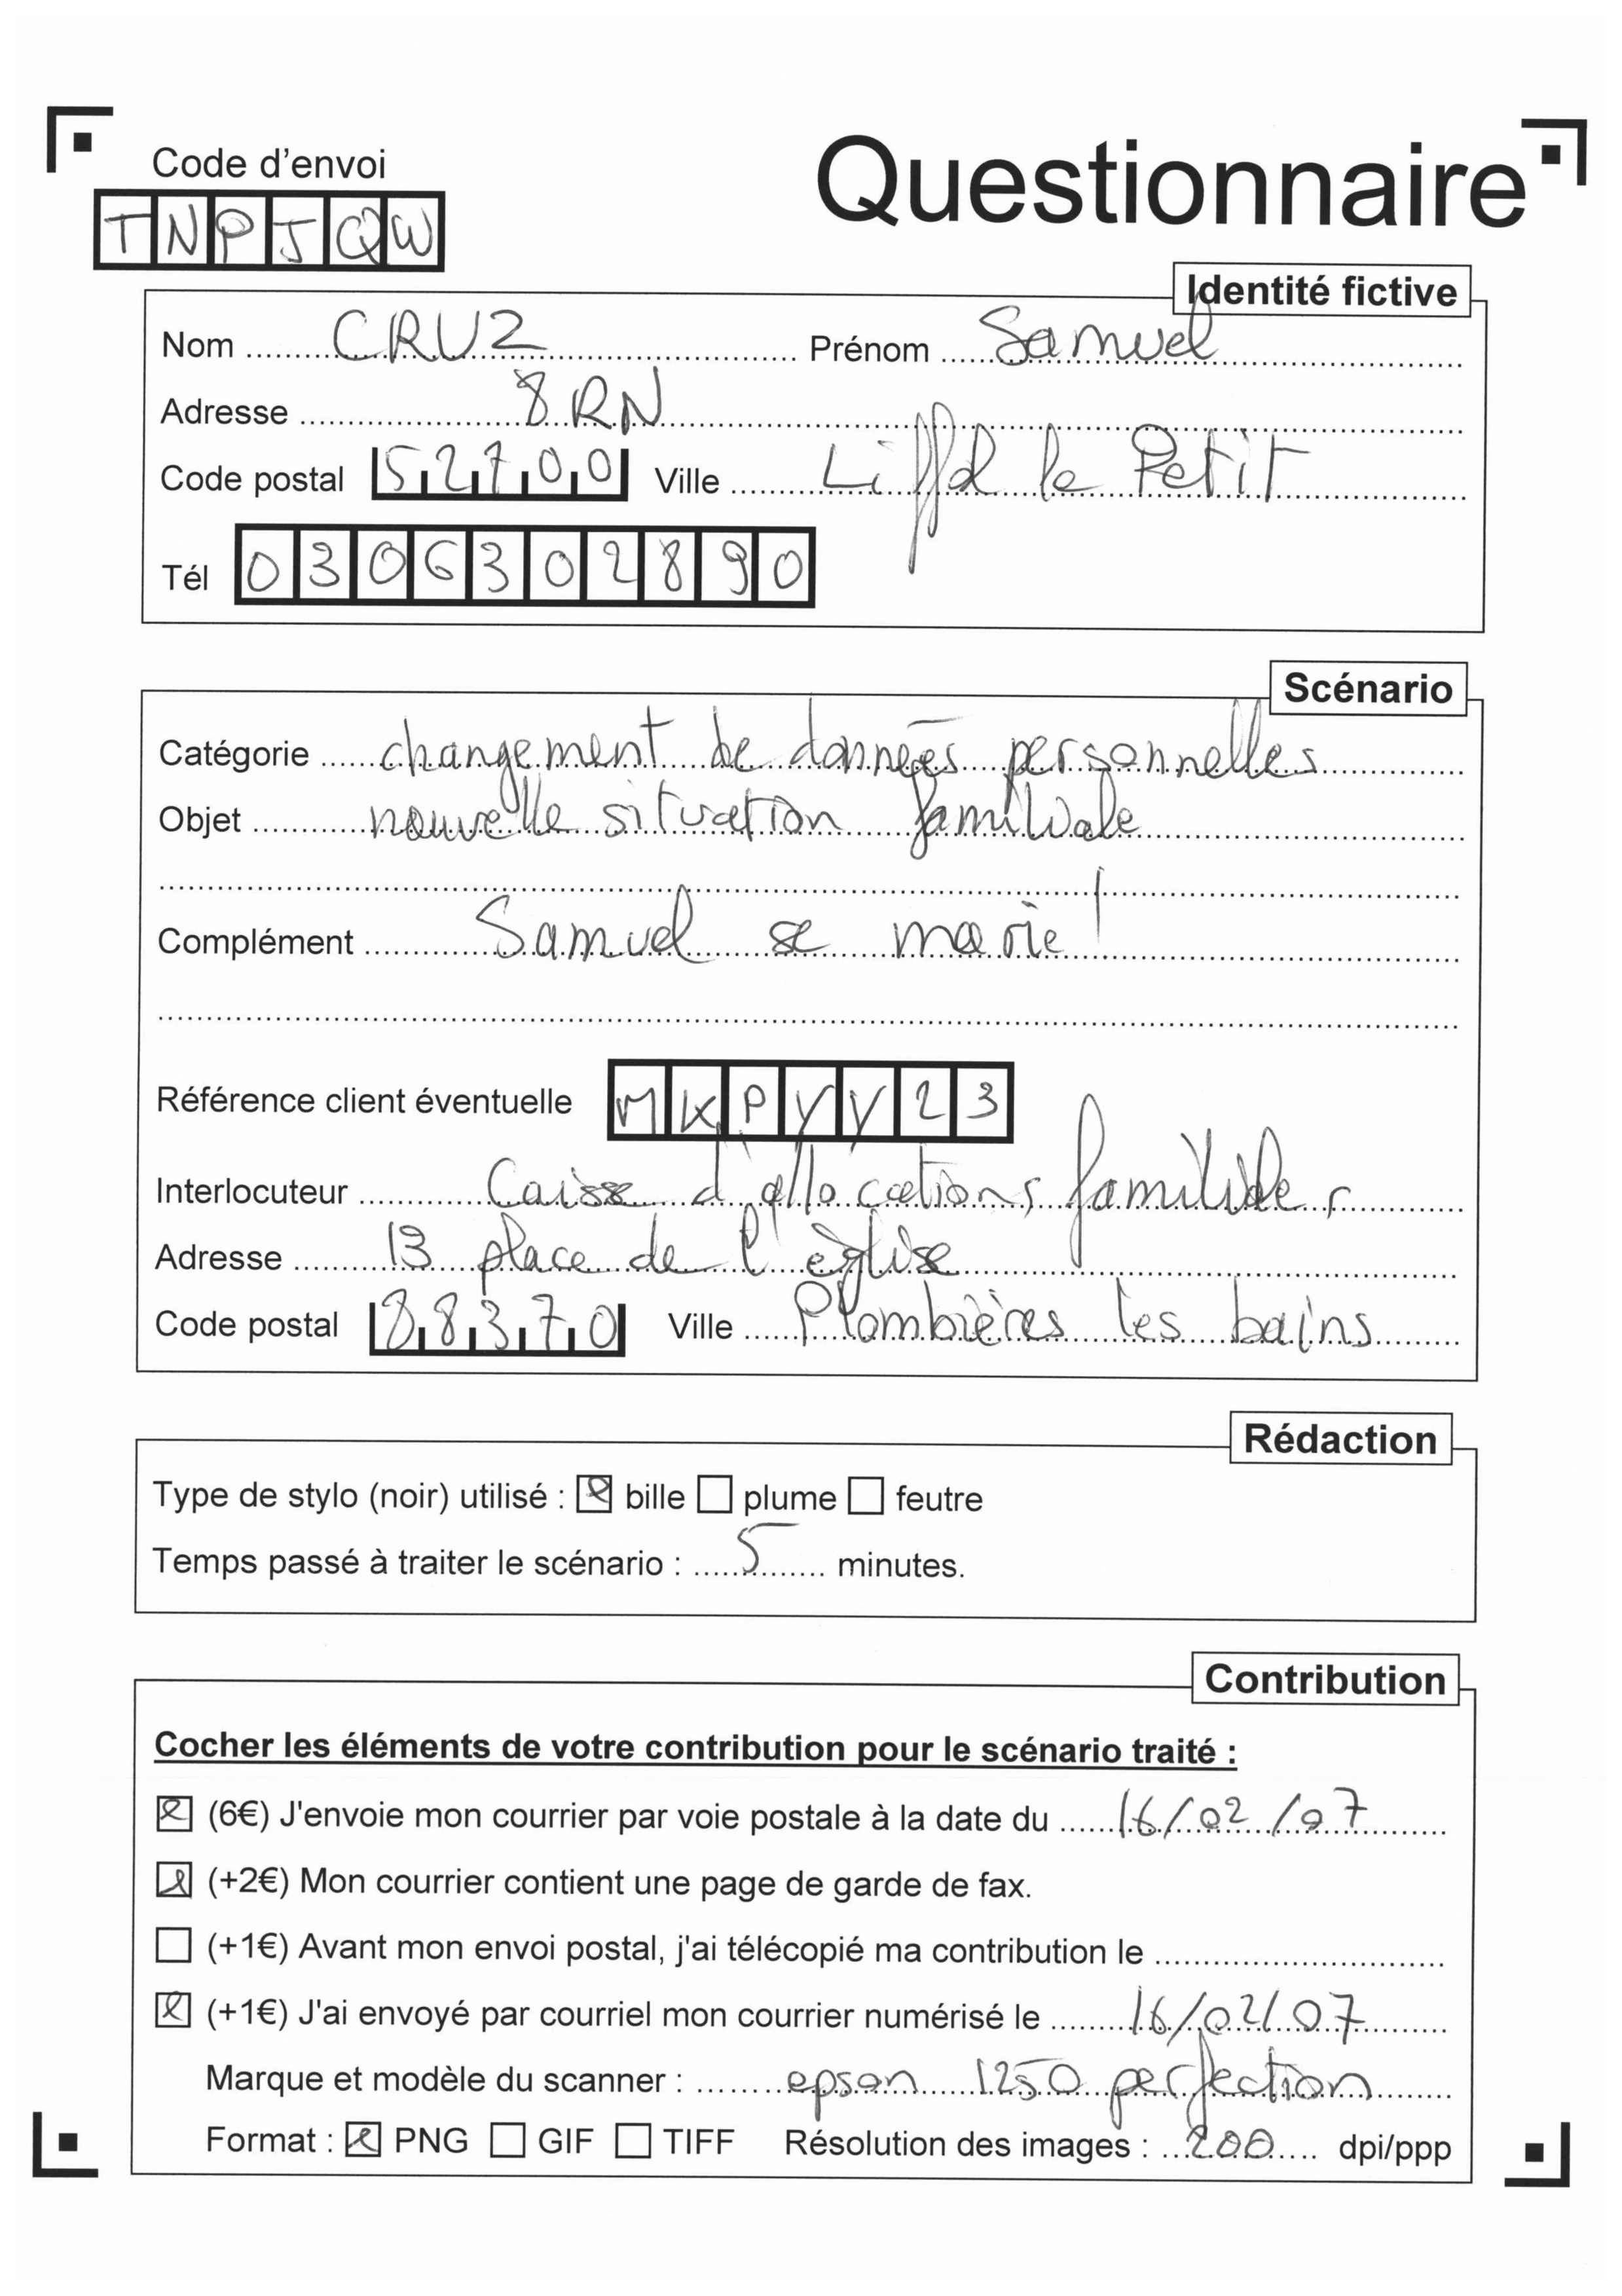 Code d'envoi
Questionnaire
TNPJQW
Identité fictive
Nom CRUZ Prénom Samuel
Adresse 8 RN
Code postal 52700 Ville Liffol le Petit
Tél 0306302890
Scénario
Catégorie changement de données personnelles
Objet nouvelle situation familiale
Complément Samuel se marie !
Référence client éventuelle MKPYY23
Interlocuteur Caisse d'allocations familiales
Adresse 13 place de l'église
Code postal 88370 Ville Plombières les bains
Rédaction
Type de stylo (noir) utilisé : bille plume feutre
Temps passé à traiter le scénario : 5 minutes.
Contribution
Cocher les éléments de votre contribution pour le scénario traité :
(6€) J'envoie mon courrier par voie postale à la date du 16/02/07
(+2€) Mon courrier contient une page de garde de fax.
(+1€) Avant mon envoi postal, j'ai télécopié ma contribution le
(+1€) J'ai envoyé par courriel mon courrier numérisé le 16/02/07
Marque et modèle du scanner : epson 1250 perfection
Format : PNG GIF TIFF Résolution des images : 200 dpi/ppp